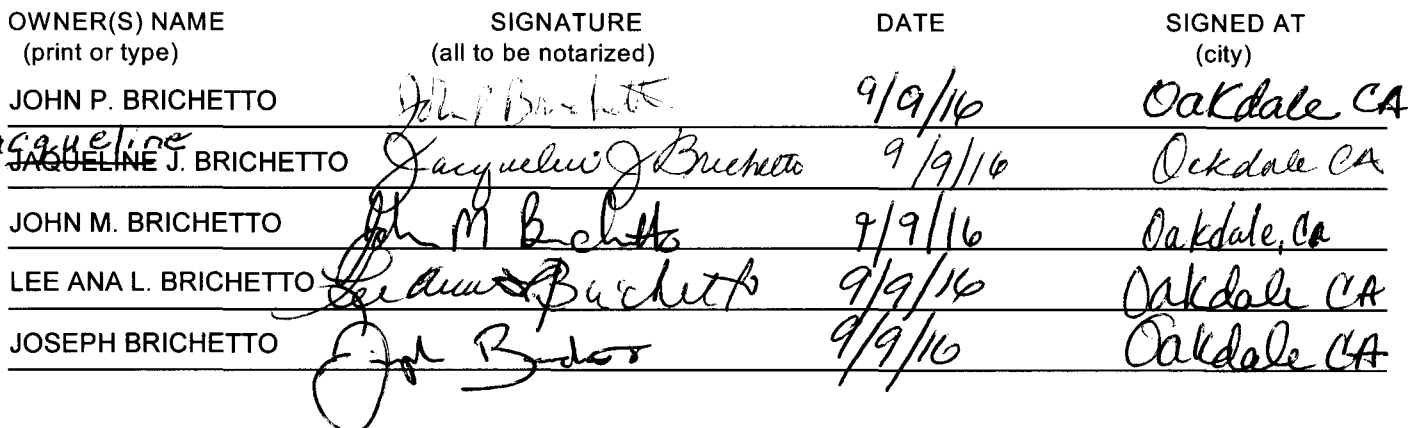 OWNER(S) NAME SIGNATURE DATE SIGNED AT
(print or type) (all to be notarized) (city)
JOHN P. BRICHETTO John P Brichetto 9/9/16 Oakdale CA
Jacqueline
JAQUELINE J. BRICHETTO Jacqueline J Brichetto 9/9/16 Oakdale CA
JOHN M. BRICHETTO John M Brichetto 9/9/16 Oakdale, Ca
LEE ANA L. BRICHETTO Lee Ana L Brichetto 9/9/16 Oakdale CA
JOSEPH BRICHETTO Joseph Brichetto 9/9/16 Oakdale CA